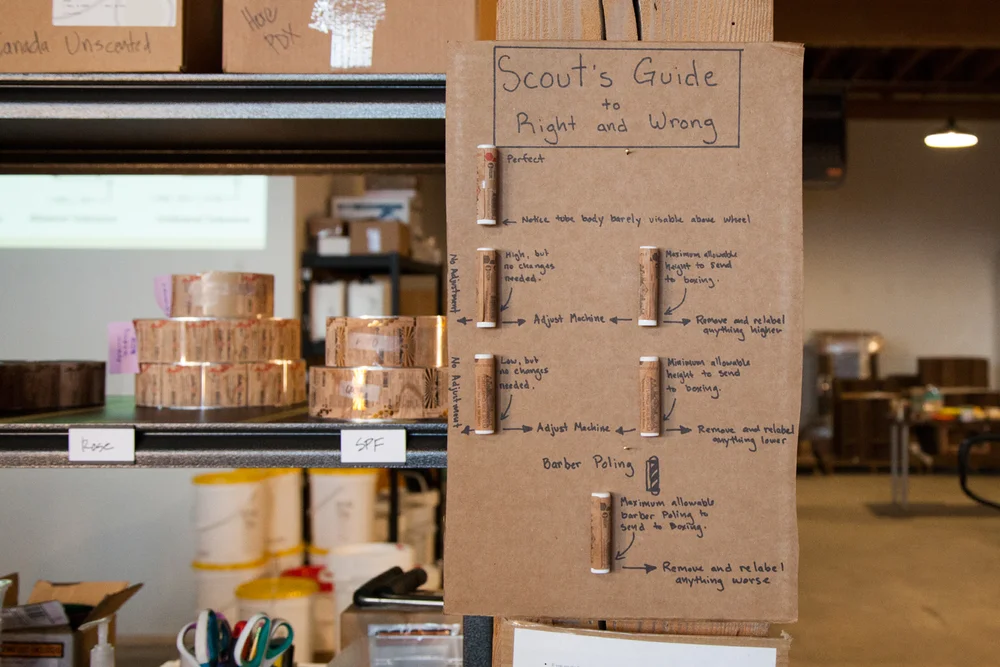 Canada Unscented
Hose
PDX
Scout's Guide
to
Right and Wrong
Perfect
Notice tube body barely visable above wheel
No Adjustment
High, but
no changes
needed.
Adjust Machine
Maximum allowable
height to send
to boxing.
Remove and relabel
anything higher
No Adjustment
Low, but
no changes
needed.
Adjust Machine
Minimum allowable
height to send
to boxing.
Remove and relabel
anything lower
Barber Poling
Maximum allowable
barber Poling to
send to Boxing.
Remove and relabel
anything worse
Rose
SPF